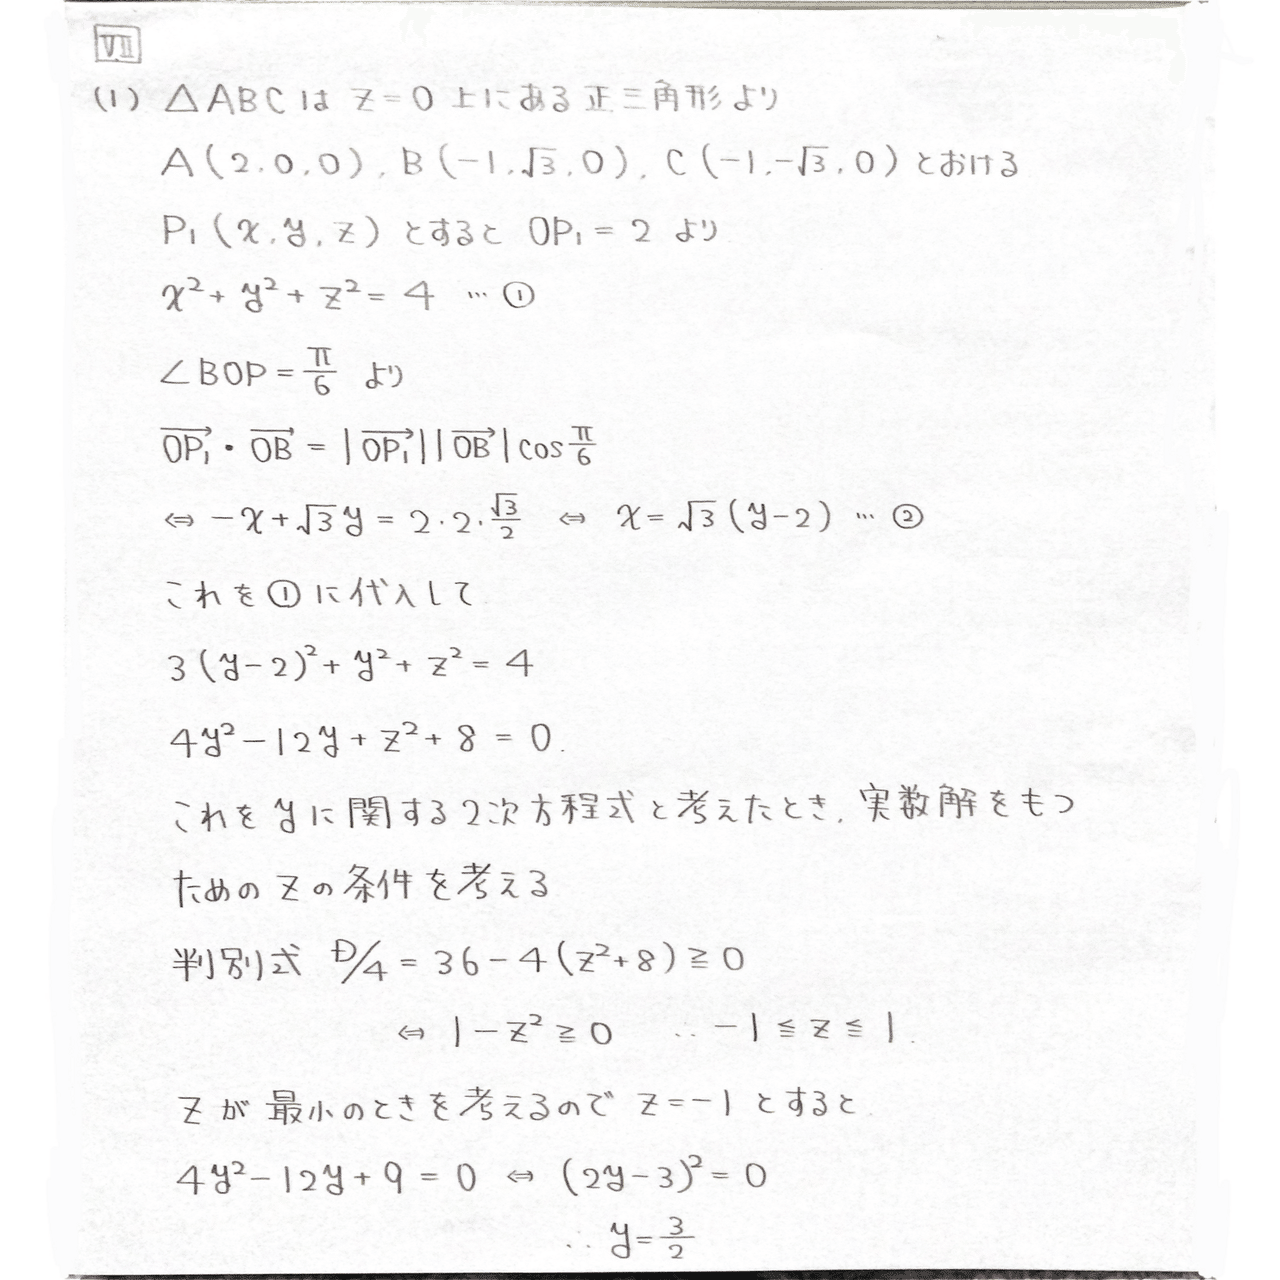 VII
(1) △ABCは z=0 上にある正三角形より
A(2,0,0), B(-1,√3,0), C(-1,-√3,0)とおける
P₁(x,y,z) とすると OP₁=2 より
x²+y²+z²=4 … ①
∠BOP=π/6 より
→OP₁・→OB=|→OP₁||→OB|cosπ/6
⇔ -x+√3y=2・2・√3/2 ⇔ x=√3(y-2) … ②
これを①に代入して
3(y-2)²+y²+z²=4
4y²-12y+z²+8=0.
これをyに関する2次方程式と考えたとき, 実数解をもつ
ための z の条件を考える
判別式 D/4=36-4(z²+8)≧0
⇔ 1-z²≧0 ∴ -1≦z≦1.
zが最小のときを考えるので z=-1とすると
4y²-12y+9=0 ⇔ (2y-3)²=0
∴ y=3/2